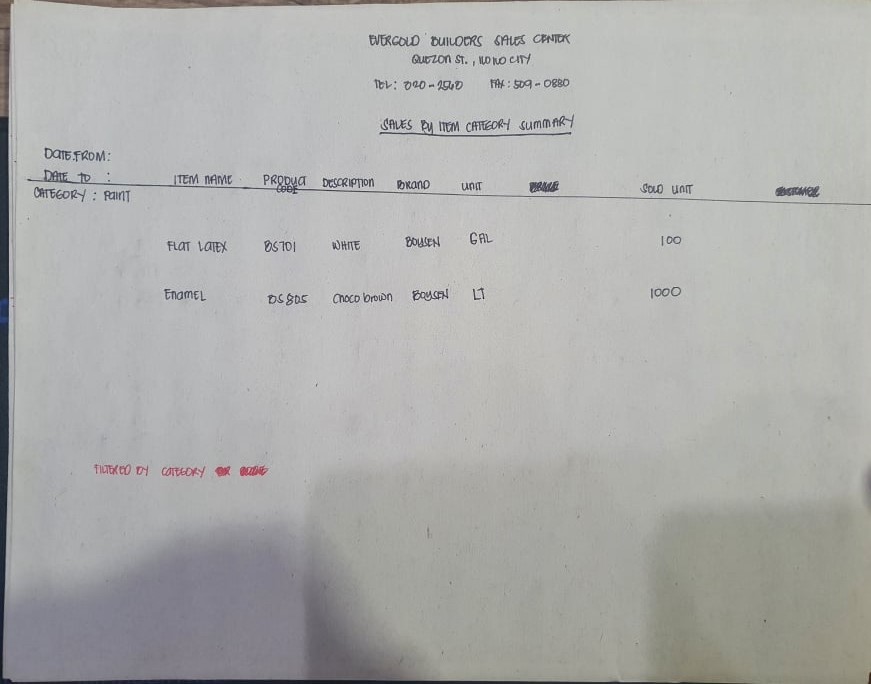 EVERGOLD BUILDERS SALES CENTER
QUEZON ST., ILOILO CITY
TEL: 020-2560 FAX: 509-0880
SALES BY ITEM CATEGORY SUMMARY
DATE FROM:
DATE TO :
ITEM NAME PRODUCT CODE DESCRIPTION BRAND UNIT SOLD UNIT
CATEGORY : PAINT
FLAT LATEX BS701 WHITE BOYSEN GAL 100
ENAMEL BS805 Choco brown BOYSEN LT 1000
FILTERED BY CATEGORY